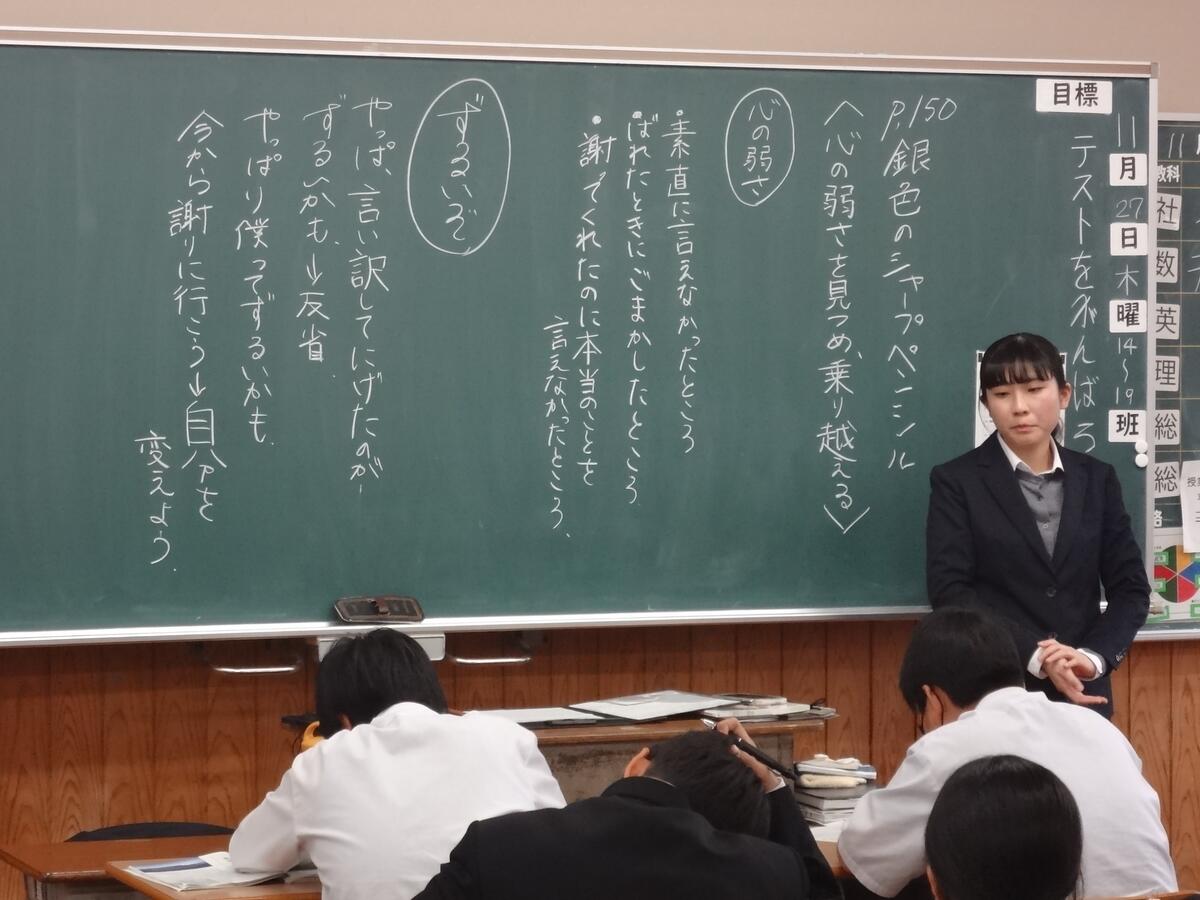 目標
11月27日木曜14～19班
テストをがんばろう
P.150 銀色のシャープペンシル
〈心の弱さを見つめ、乗り越える〉
心の弱さ
・素直に言えなかったところ
・ばれたときにごまかしたところ
・謝ってくれたのに本当のことを
言えなかったところ、
ずるいぞ
やっぱ、言い訳してにげたのが
ずるいかも、→反省.
やっぱり僕ってずるいかも.
今から謝りに行こう→自分を
変えよう.
11月
教科
社
数
英
理
総
総